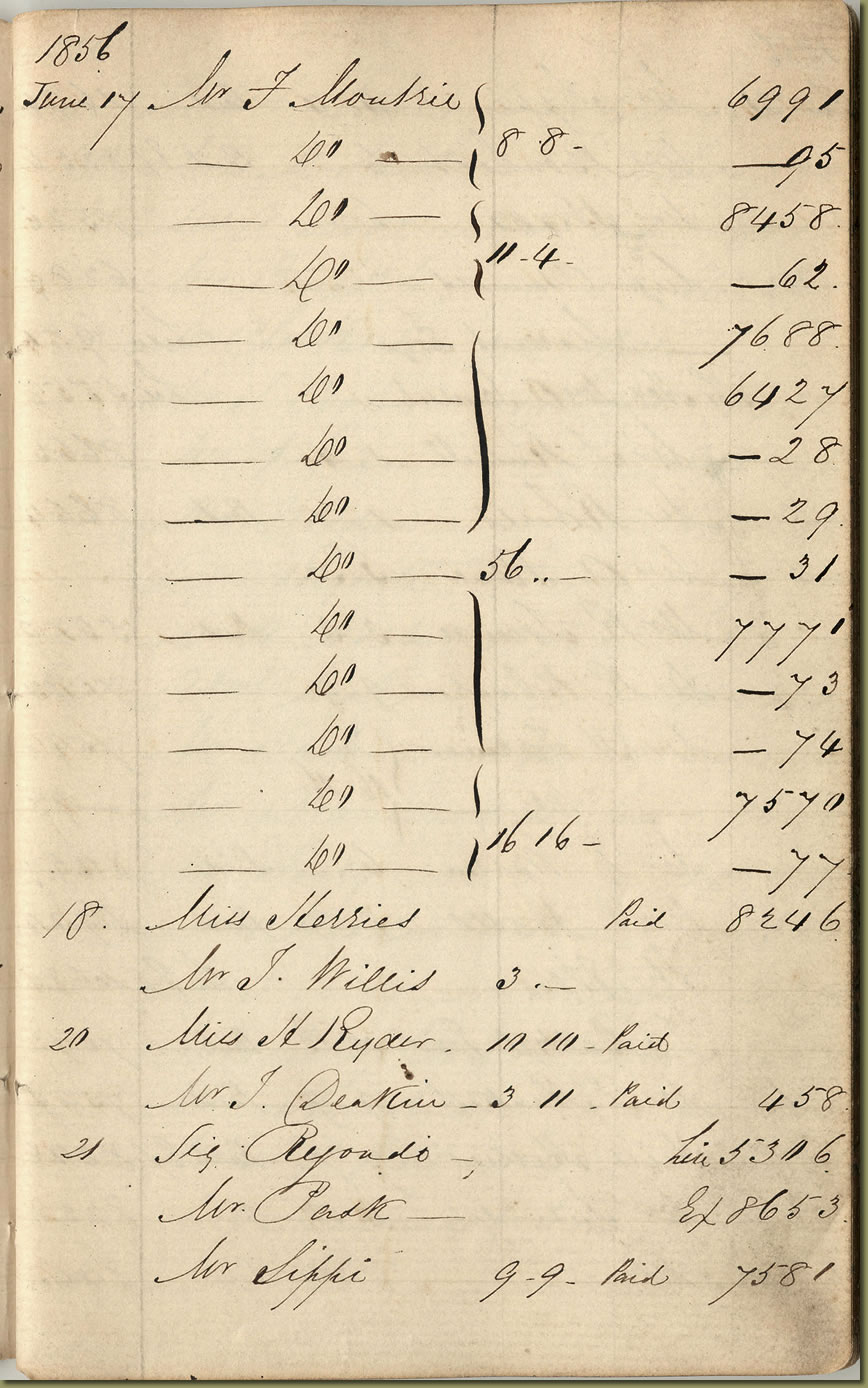 1856
June 17 Mr F Moutrie 6991
— Do — 8 8 - —95
— Do — 8458
— Do — 11 - 4 - —62.
— Do — 7688
— Do — 6427
— Do — —28
— Do — —29
— Do — 56 .. — — 31
— Do — 7771
— Do — —73
— Do — — 74
— Do — 7570
— Do — 16 16 - —77
18. Miss Herries Paid 8246
Mr J. Willis 3 . —
20 Miss H Ryder . 10 10 - Paid
Mr J. Deakin - 3 11 - Paid 458
21 Sig Regondi - 5306
Mr. Pask — Ex 8653
Mr Sippi 9 - 9 - Paid 7581